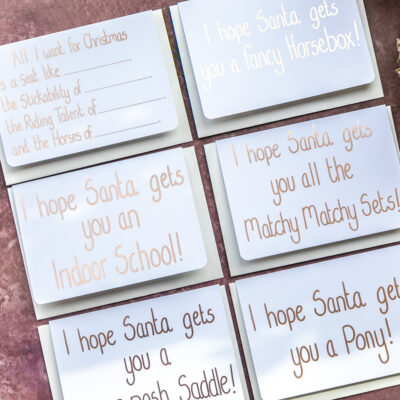 All I want for Christmas
is a seat like
the Stickability of
the Riding Talent of
and the Horses of
I hope Santa gets
you a fancy Horsebox!
I hope Santa gets
you an
Indoor School!
I hope Santa gets
you all the
Matchy Matchy Sets!
I hope Santa gets
you a
posh Saddle!
I hope Santa get
you a Pony!